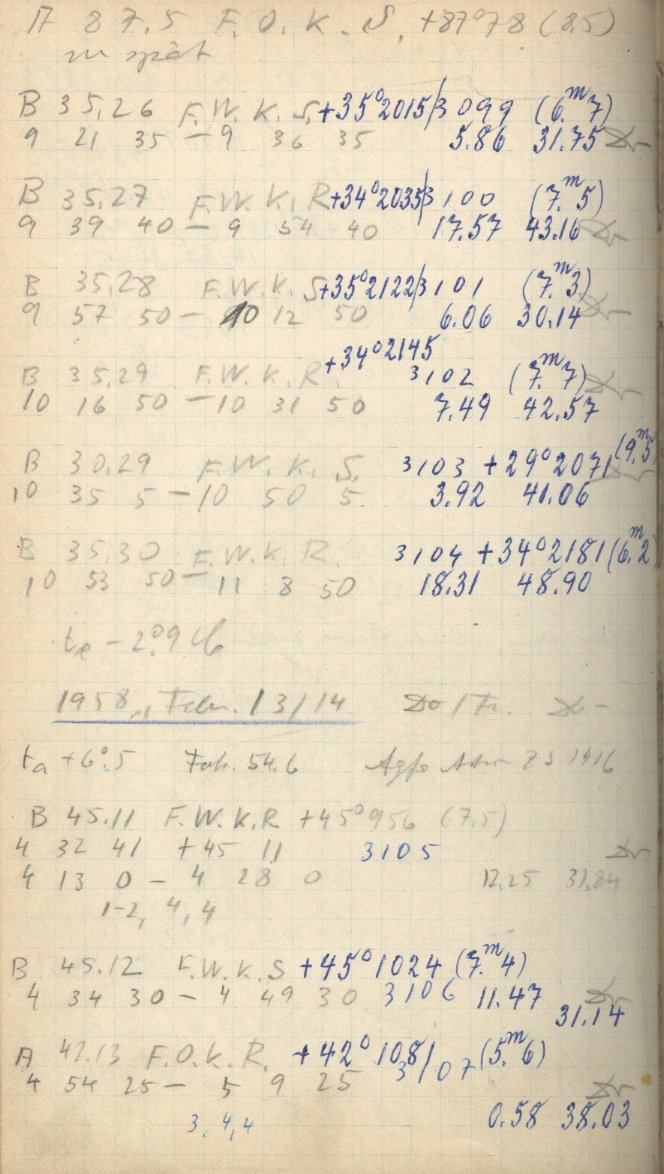 A 87.5 F. O. K. S. +87°78 (8.5)
zu spät
B 35.26 F. W. K. S. +35°2015 3099 (6.ᵐ7)
9 21 35 – 9 36 35 5.86 31.75
B 35.27 F. W. K. R +34°2035 3100 (7.ᵐ5)
9 39 40 – 9 54 40 17.57 43.16
B 35.28 F. W. K. S +35°2122 3101 (7.ᵐ3)
9 57 50 – 10 12 50 6.06 30.14
B 35.29 F. W. K. R. +34°2145 3102 (7.ᵐ7)
10 16 50 – 10 31 50 7.49 42.57
B 30.29 F. W. K. S. 3103 +29°2071 (9.ᵐ5
10 35 5 – 10 50 5. 3.92 41.06
B 35.30 F. W. K. R. 3104 +34°2181 (6.ᵐ2
10 53 50 – 11 8 50 18.31 48.90
tₑ – 2°.9
1958, Febr. 13/14 Do/Fr.
tₐ +6°.5 Fok. 54.6 Agfa Astro
B 45.11 F. W. K. R +45°956 (7.5)
4 32 41 +45 11 3105
4 13 0 – 4 28 0 12.25 31.84
1-2, 4, 4
B 45.12 F. W. K. S +45°1024 (7.ᵐ4)
4 34 30 – 4 49 30 3106 11.47 31.14
A 42.13 F. O. K. R. +42°1081 3107 (5.ᵐ6)
4 54 25 – 5 9 25
3, 4, 4 0.58 38.03